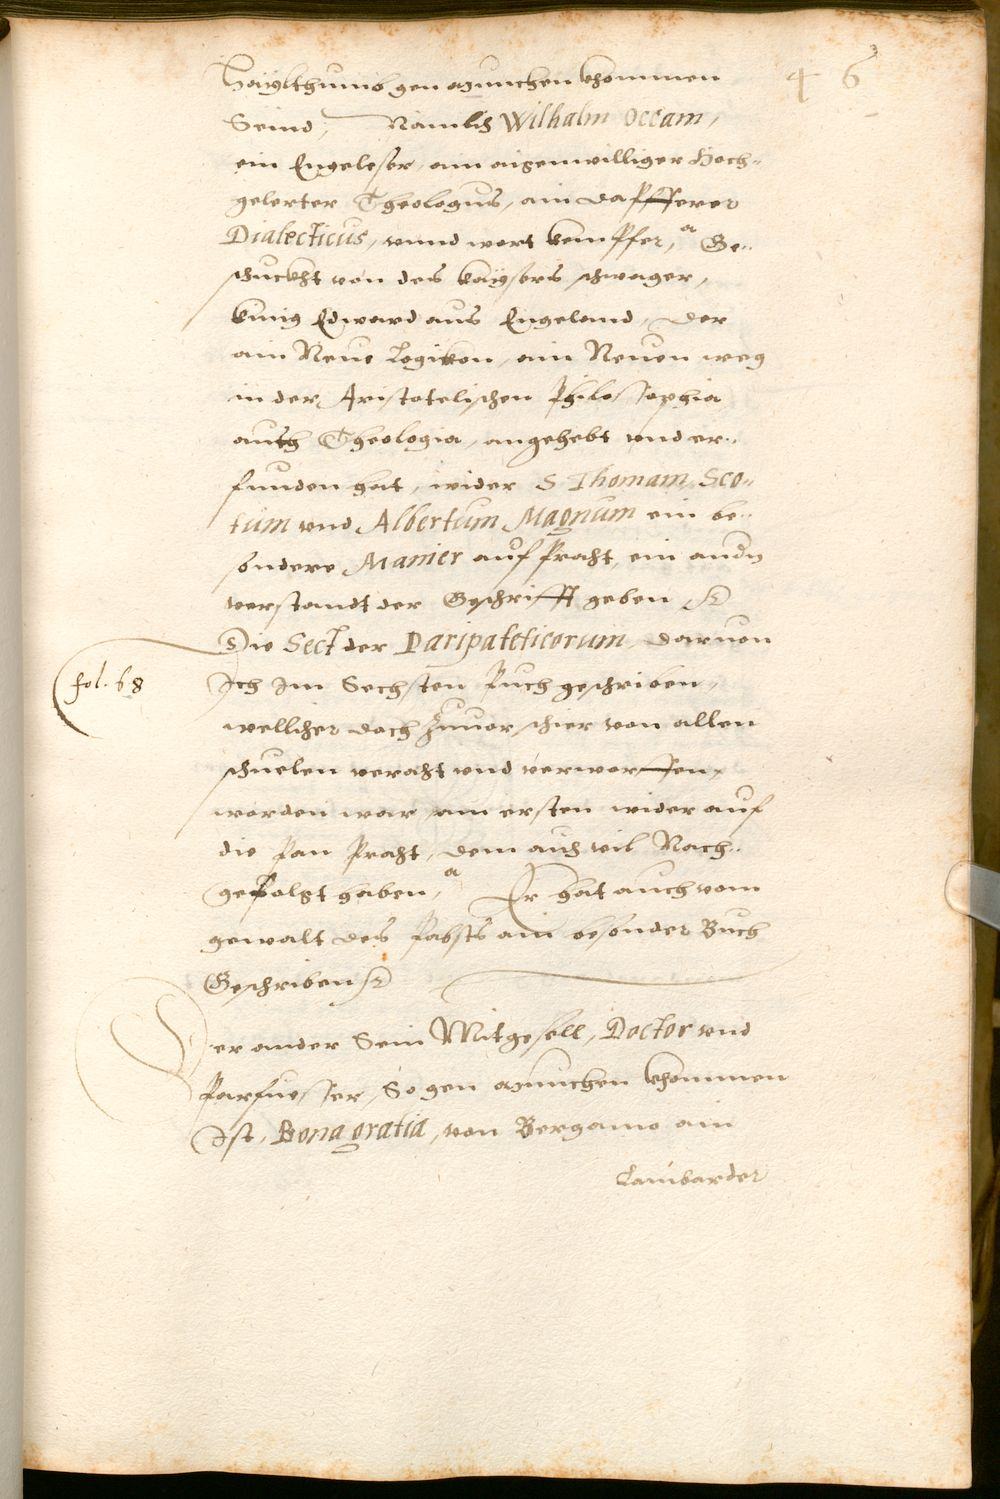 46
Haylthumb gen Munchen khommen
Seind, Namlich Wilhalm Occam,
ein Engeleser, ain aigenwilliger Hoch-
gelerter Theologus, ain dapfferer
Dialecticus, vnnd wort kempffer, a Ge-
schuckht von des kaysers schwager,
kunig Edward aus Engeland, der
ain Neue Logikon, ain Neuen weg
in der Aristotelischen Philossophia
auch Theologia, angehebt vnd er-
funden hat, wider S Thomam Sco-
tum vnd Albertum Magnum ein be-
sondere Manier auf Pracht, ein andn
verstandt der Geschrifft geben
Die Sect der Paripateticorum daruon
fol. 68
Ich Im Sechsten Puch geschriben,
wellicher doch zuuor schier von allen
schuelen veracht vnd verworffen,
worden war am ersten wider auf
die Pan Pracht, dem auch vil Nach-
gefolgt haben, a Er hat auch vom
gewalt des Pabsts ain besonder Buch
Geschriben
Der ander Sein Mitgesell, Doctor vnd
Parfuesser, So gen Munchen khommen
Ist, Bona gratia, von Bergamo ain
Lambarder